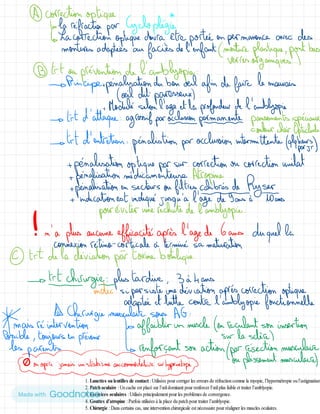 (A) correction optique
la réfraction par Cycloplégie
La correction optique devra être portée en permanence avec des
montures adaptées au faciès de l'enfant (monture plastique, pont bas
verres organiques)
(B) trt ou prévention de l'amblyopie
Principe: pénalisation du bon œil afin de faire le mauvais
(œil dit paresseux)
Module selon l'âge et la profondeur de l'amblyopie
trt d'attaque: agressif par occlusion permanente pansements
trt d'entretien: pénalisation par occlusion intermittente
+ pénalisation optique par sur correction ou correction
+ pénalisation médicamenteuse
+ pénalisation en secteurs ou filtres calibrés de Ryser
+ indication est indiqué jusqu'à l'âge de 9 ans à 10 ans
pour éviter une rechute de l'amblyopie
! n'a plus aucune efficacité après l'âge de 6 ans duquel la
connexion rétino-corticale a terminé sa maturation
(C) trt de la déviation par toxine botulique
trt chirurgie: plus tardive, 3 à 4 ans
si persiste une déviation après correction optique
adaptée et lutte contre l'amblyopie fonctionnelle
Chirurgie musculaire sous AG:
affaiblir un muscle (en reculant son insertion
sur la sclère)
renforçant son action (par résection musculaire
ou plissement musculaire)
mais ré intervention
possible, toujours le prévenir
les parents
Ø n'opère jamais un strabisme accommodatif
1. Lunettes ou lentilles de contact : Utilisées pour corriger les erreurs de réfraction comme la myopie, l'hypermétropie ou l'astigmatisme
2. Patch oculaire : Un cache est placé sur l'œil dominant pour renforcer l'œil plus faible et traiter l'amblyopie.
3. Exercices oculaires : Utilisés principalement pour les problèmes de convergence.
4. Gouttes d'atropine : Parfois utilisées à la place du patch pour traiter l'amblyopie.
5. Chirurgie : Dans certains cas, une intervention chirurgicale est nécessaire pour réaligner les muscles oculaires.
Made with Goodnotes